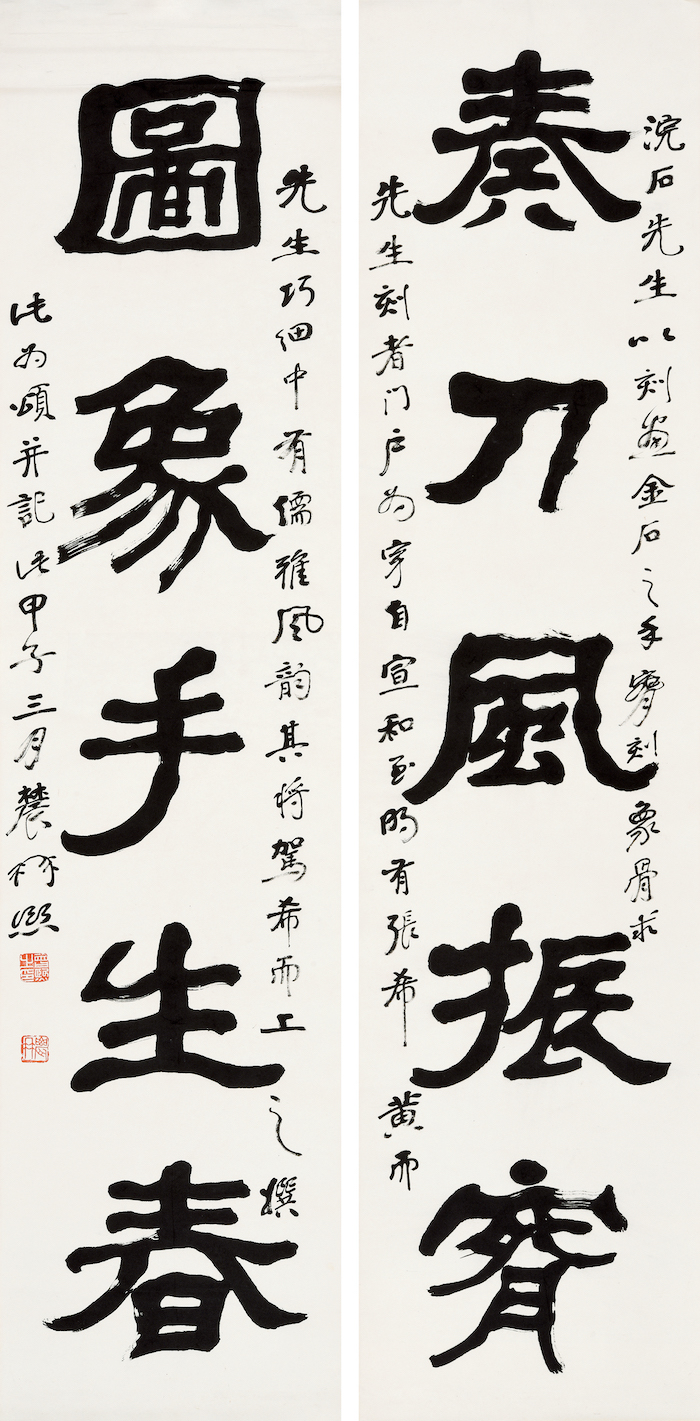 浣石先生以刻畫金石之手刻象骨求
奏刀風振
先生刻者門戶為穿自宣和至明有張希黄而
先生巧細中有儒雅風韵其將駕希而上之撰
圖象手生春
此為頌并記甲子三月農髯熙